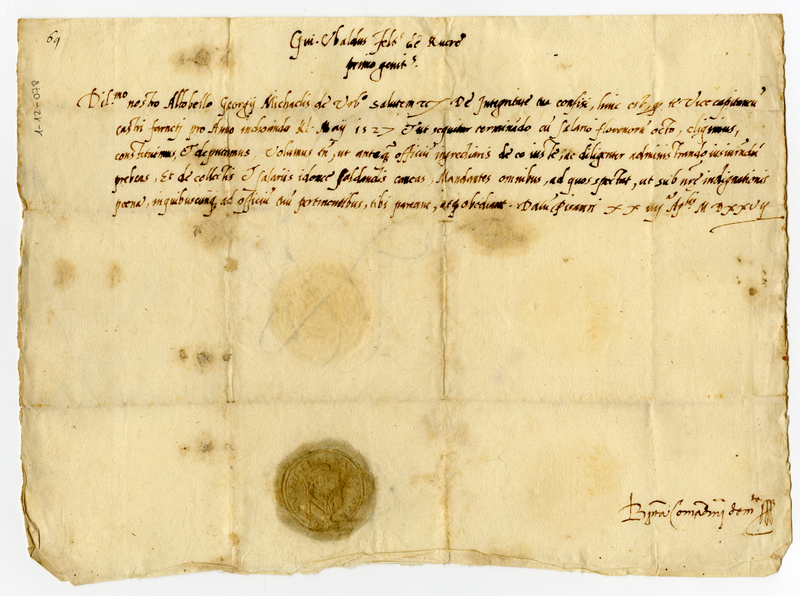 69
1-12-078
Gui. Ubaldus Felt.s de Ruere
primogenit.s
Dil.mo nostro Altobello Georgij Michaelis de Urb.o salutem De Integritate tua confisi, hinc est, q. te Vicecapitaneũ
castri pro Anno inchoando kl. Maij 1527 Et ut sequitur terminãdo cũ salario florenorũ octo, eligimus,
constituimus, et deputamus Volumus tñ, ut anteq officiũ ingrediaris de eo iuste, ac diligenter administrando iusiurãdũ
prebeas, Et de collectis et salariis idonee caveas, Mandantes omnibus, ad quos spectat, ut sub nrẽ indignationis
poena, in quibuscunq ad officiũ tuũ pertinentibus, tibi pareant, atq obediant. Datũ Pisauri M D XXVIJ